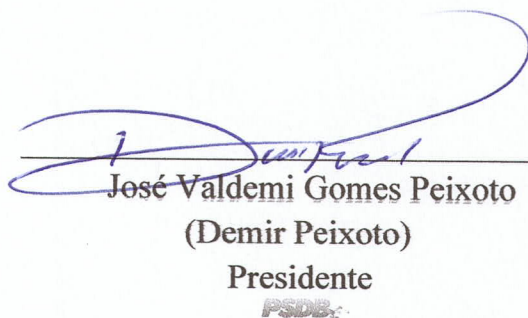 José Valdemi Gomes Peixoto
(Demir Peixoto)
Presidente
PSDB